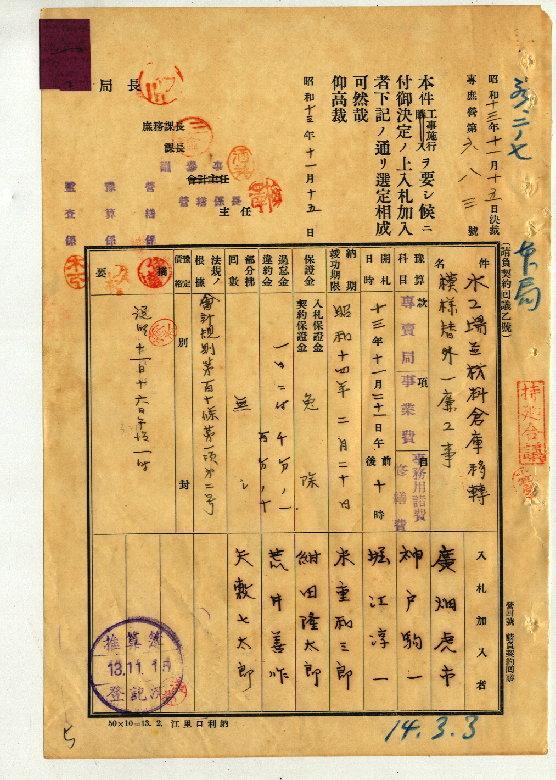 昭和十三年十一月十五日決裁
專庶營第六八三號
本件工事施行ヲ要シ候ニ
付御決定ノ上入札加入
者下記ノ通リ選定相成
可然哉
仰高裁
昭和十三年十一月十五日
局長
庶務課長
課長
會計主任
主任
參事
營繕係長
營繕係
豫算係
監査係
(請負契約回議乙號)
件名
水工場並材料倉庫移轉
模樣替外一廉工事
豫算科目
款 專賣局事業費
項
目 事務用諸費
修繕費
開札日時
十三年十一月二十一日午前後十時
納期
竣功期限
昭和十四年二月二十日
保證金
入札保證金
契約保證金
免除
過怠金
違約金
一日ニ付千分ノ一
百分ノ十
部分拂回數
無シ
法規ノ根據
會計規則第百十條第一項第二號
豫定價格
別封
摘要
入札加入者
廣畑虎市
神戸駒一
堀江淳一
米重和三郎
紺田隆太郎
荒井善作
矢敷七太郎
推算簿
13.11.15
登記濟
特處合議
50×10=13.2. 江巣口利納
14.3.3
5